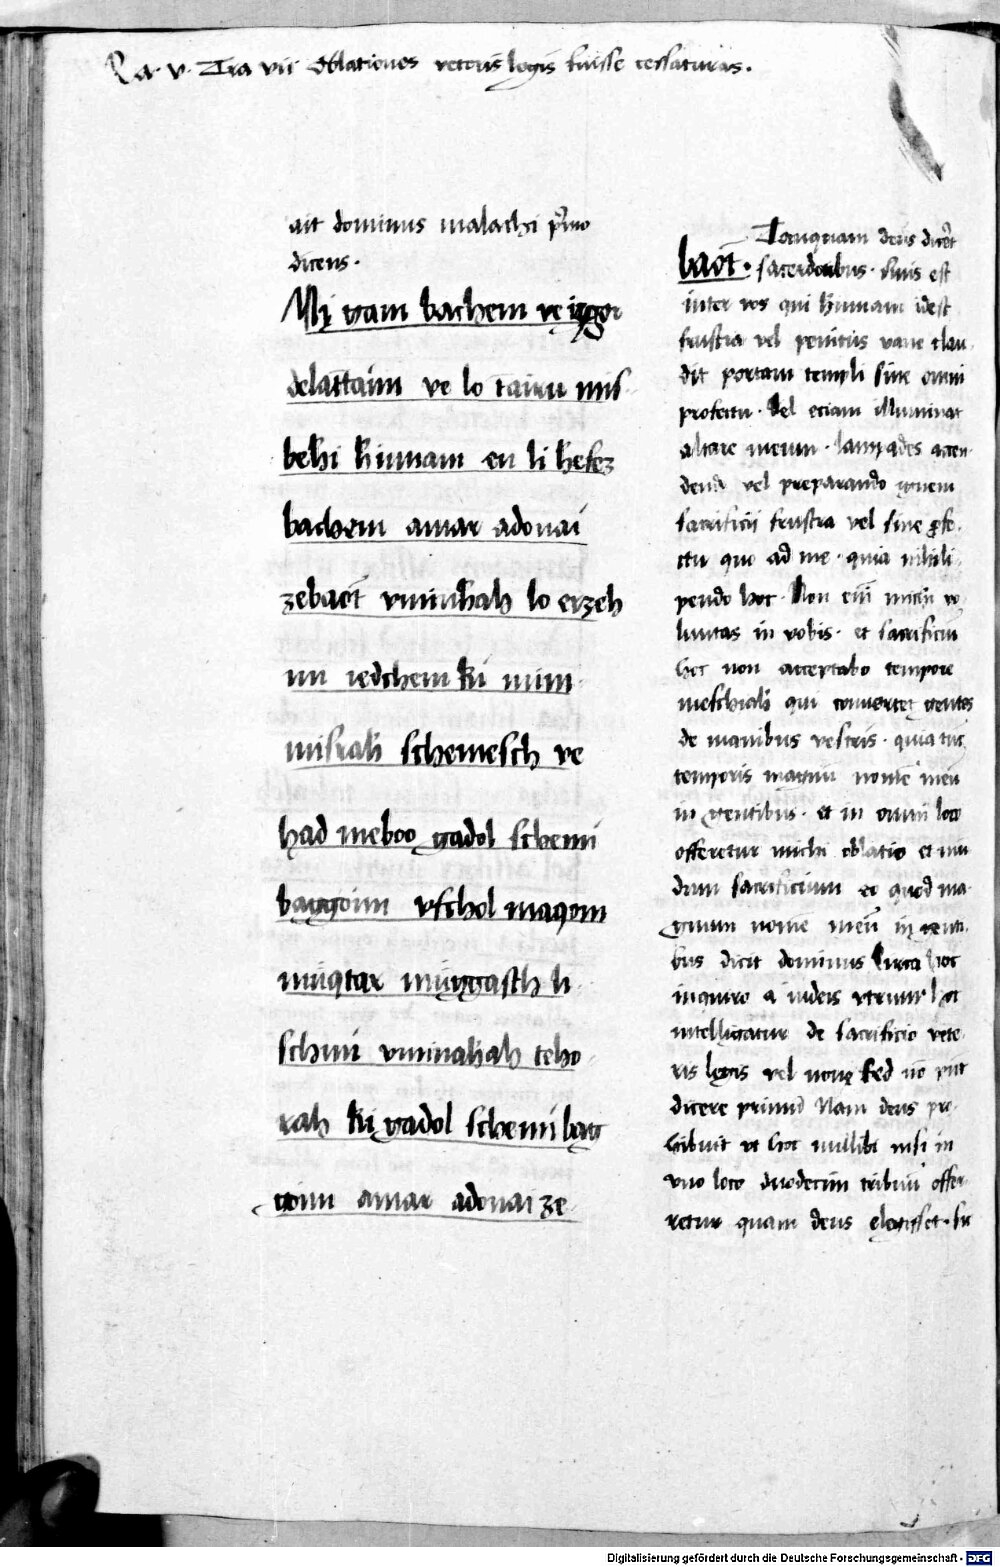 Ra. v. Tra vii Oblationes veteris legis fuisse cessaturas.
ait dominus malachi p̄mo
dicens.
Mi gam bachem ve iggor
delattaim ve lo tairu mis
behi hinnam en li hefez
bachem amar adonai
zebaot vminhah lo erzeh
mi iedchem ki mim
misrah schemesch ve
had meboo gadol schemi
baggoim vfchol maqom
muqtar muggasch li
schmi vminahah teho
rah ki gadol schemi bag
goim amar adonai ze
baot. Tanquam deus dicēt
sacerdotibus. Quis est
inter vos qui hinnam idest
frustra vel penitus vane clau
dit portam templi sine omni
profectu. Vel eciam illuminat
altare meum. lampades accen
dendi vel preparando ignem
sacrificii frustra vel sine ꝓfe
ctu quo ad me. quia nihili
pendo hoc. Non em̄ michi vo
luntas in vobis. et sacrificiū
hec non acceptabo tempore
meschiah qui convertet gentes
de manibus vestris. quia tūc
temporis magnū nomē meū
in gentibus. et in omni loco
offeretur michi oblatio et mu
dum sacrificium eo quod ma
gnum nomē meū in genti
bus dicit dominus Circa hoc
inquiro a iudeis vtrum hoc
intelligatur de sacrificio vete
ris legis vel nove Sed nō pn̄t
dicere primū Nam deus pro
hibuit vt hoc nullibi nisi in
vno loco duodecim tribuū offer
retur quam deus elegisset. sic